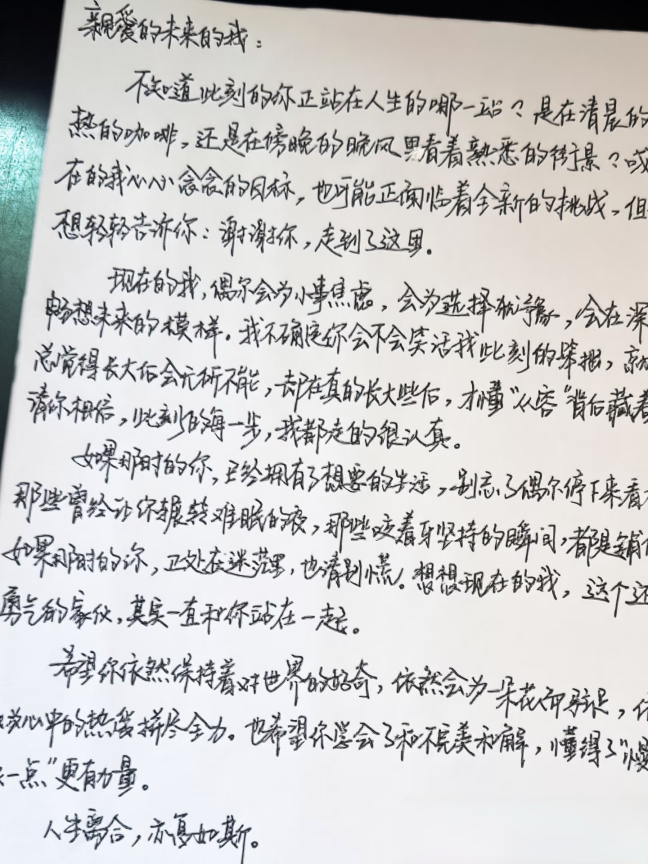 亲爱的未来的我：
不知道此刻的你正站在人生的哪一站？是在清晨的
热的咖啡，还是在傍晚的晚风里看着熟悉的街景？或
在的我心心念念的目标，也可能正面临着全新的挑战，但
想轻轻告诉你：谢谢你，走到了这里。
现在的我，偶尔会为小事焦虑，会为选择犹豫，会在深
畅想未来的模样。我不确定你会不会笑话我此刻的笨拙，就
总觉得长大后会无所不能，却在真的长大些后，才懂“从容”背后藏着
请你相信，此刻的每一步，我都走的很认真。
如果那时的你，已经拥有了想要的生活，别忘了偶尔停下来看
那些曾经让你辗转难眠的夜，那些咬着牙坚持的瞬间，都是铺
如果那时的你，正处在迷茫里，也请别慌。想想现在的我，这个还
勇气的家伙，其实一直和你站在一起。
希望你依然保持着对世界的好奇，依然会为一朵花而驻足，
心中的热爱拼尽全力。也希望你学会了和不完美和解，懂得了“慢
一点”更有力量。
人生离合，亦复如斯。